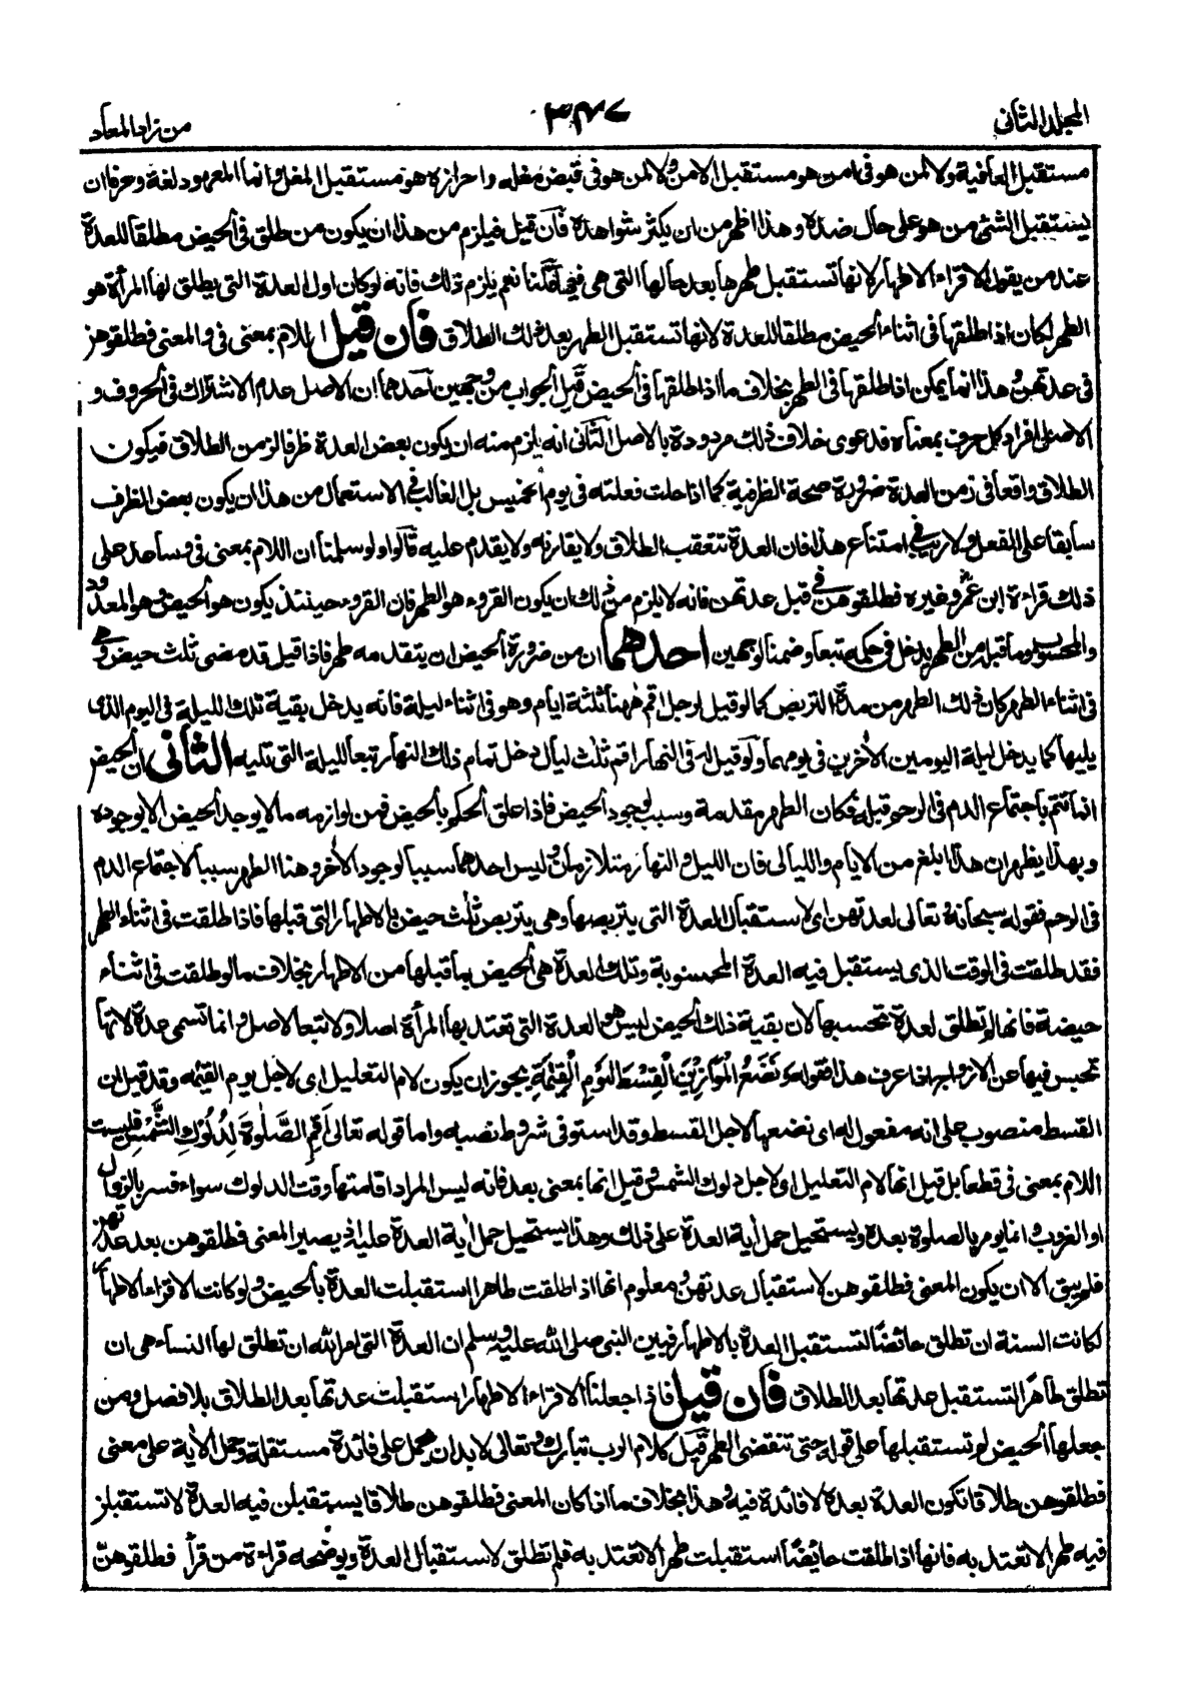 المجلد الثاني
٣٤٧
من زاد المعاد
مستقبل العافية ولا لمن هو في امن هو مستقبل الامن ولا لمن هو في قبض مغله واحرازه هو مستقبل المغل وانما المعهود لغة وعرفا ان
يستقبل الشئ من هو على حال ضده وهذا اظهر من ان يكثر شواهده فان قيل فيلزم من هذا ان يكون من طلق في الحيض مطلقا للعدة
عند من يقول الاقراء الاطهار لانها تستقبل طهرها بعد حالها التي هي فيها قلنا نعم يلزم ذلك فانه لو كان اول العدة التي يطلق لها المرأة هو
الطهر لكان اذا طلقها في اثناء الحيض مطلقا للعدة لانها تستقبل الطهر بعد ذلك الطلاق فان قيل اللام بمعنى في والمعنى فطلقوهن
في عدتهن وهذا انما يمكن اذا طلقها في الطهر بخلاف ما اذا طلقها في الحيض قيل الجواب من وجهين احدهما ان الاصل عدم الاشتراك في الحروف و
الاصل افراد كل حرف بمعناه فدعوى خلاف ذلك مردودة بالاصل الثاني انه يلزم منه ان يكون بعض العدة ظرفا لزمن الطلاق فيكون
الطلاق واقعا في زمن العدة ضرورة صحة الظرفية كما اذا قلت فعلته في يوم الخميس بل الغالب في الاستعمال من هذا ان يكون بعض الظرف
سابقا على الفعل ولا ريب في امتناع هذا فان العدة تتعقب الطلاق ولا يقارنه ولا يقدم عليه قالوا ولو سلمنا ان اللام بمعنى في وساعد على
ذلك قراءة ابن عمر وغيره فطلقوهن في قبل عدتهن فانه لا يلزم من ذلك ان يكون القروء هو الطهر فان القروء حينئذ يكون هو الحيض وهو المعدود
والمحسوب وما قبله من الطهر يدخل في حكمه تبعا وضمنا لوجهين احدهما ان من ضرورة الحيض ان يتقدمه طهر فاذا قيل قد مضى ثلث حيض وهي
في اثناء الطهر كان ذلك الطهر من مدة التربص كما لو قيل لرجل اقم ههنا ثلثة ايام وهو في اثناء ليلة فانه يدخل بقية تلك الليلة في اليوم الذي
يليها كما يدخل ليلة اليومين الأخرين في يوميهما ولو قيل له في النهار اقم ثلث ليال دخل تمام ذلك النهار تبعا لليلة التي تليه الثاني ان الحيض
انما تتم باجتماع الدم في الرحم قبله فكان الطهر مقدمة وسبب لوجود الحيض فاذا علق الحكم بالحيض فمن لوازمه ما لا يوجد الحيض الا بوجوده
وبهذا يظهر ان هذا ابلغ من الايام والليالي فان الليل والنهار متلازمان وليس احدهما سببا لوجود الأخر وهنا الطهر سببا لاجتماع الدم
في الرحم فقوله سبحانه وتعالى لعدتهن اي لاستقبال العدة التي يتربصها وهي يتربص ثلث حيض بالاطهار التي قبلها فاذا طلقت في اثناء الطهر
فقد طلقت في الوقت الذي يستقبل فيه العدة المحسوبة وتلك العدة هي الحيض بما قبلها من الاطهار بخلاف ما لو طلقت في اثناء
حيضة فانها لم تطلق لعدة تحسبها لان بقية ذلك الحيض ليس هو العدة التي تعتد بها المرأة اصلا ولا تبعا لاصل وانما تسمى عدة لانها
تحبس فيها عن الازواج اذا عرف هذا فقوله وَنَضَعُ الْمَوَازِيْنَ الْقِسْطَ لِيَوْمِ الْقِيٰمَةِ يجوز ان يكون لام التعليل اي لاجل يوم القيٰمه وقد قيل ان
القسط منصوب على انه مفعول له اي نضعها لاجل القسط وقد استوفى شروط نصبه واما قوله تعالى اَقِمِ الصَّلٰوةَ لِدُلُوْكِ الشَّمْسِ فليست
اللام بمعنى في قطعا بل قيل انها لام التعليل اي لاجل دلوك الشمس وقيل انها بمعنى بعد فانه ليس المراد اقامتها وقت الدلوك سواء فسر بالزوال
او الغروب وانما يومر بالصلوة بعده ويستحيل حمل أية العدة على ذلك وهذا يستحيل حمل أية العدة عليه اذ يصير المعنى فطلقوهن بعد عدتهن
فلم يبق الا ان يكون المعنى فطلقوهن لاستقبال عدتهن ومعلوم انها اذا طلقت طاهرا استقبلت العدة بالحيض ولو كانت الاقراء الاطهار
لكانت السنة ان تطلق حائضا لتستقبل العدة بالاطهار فبين النبي صلى الله عليه وسلم ان العدة التي امر الله ان تطلق لها النساء هي ان
تطلق طاهرا لتستقبل عدتها بعد الطلاق فان قيل فاذا جعلنا الاقراء الاطهار استقبلت عدتها بعد الطلاق بلا فصل ومن
جعلها الحيض لم تستقبلها على قوله حتى تنقضى الطهر قيل كلام الرب تبارك وتعالى لابد ان يحمل على فائدة مستقلة وحمل الأية على معنى
فطلقوهن طلاقا تكون العدة بعده لا فائدة فيه وهذا بخلاف ما اذا كان المعنى فطلقوهن طلاقا يستقبلن فيه العدة لا تستقبلن
فيه طهرا لا تعتد به فانها اذا طلقت حائضا استقبلت طهرا لا تعتد به فلم تطلق لاستقبال العدة ويوضحه قراءة من قرأ فطلقوهن